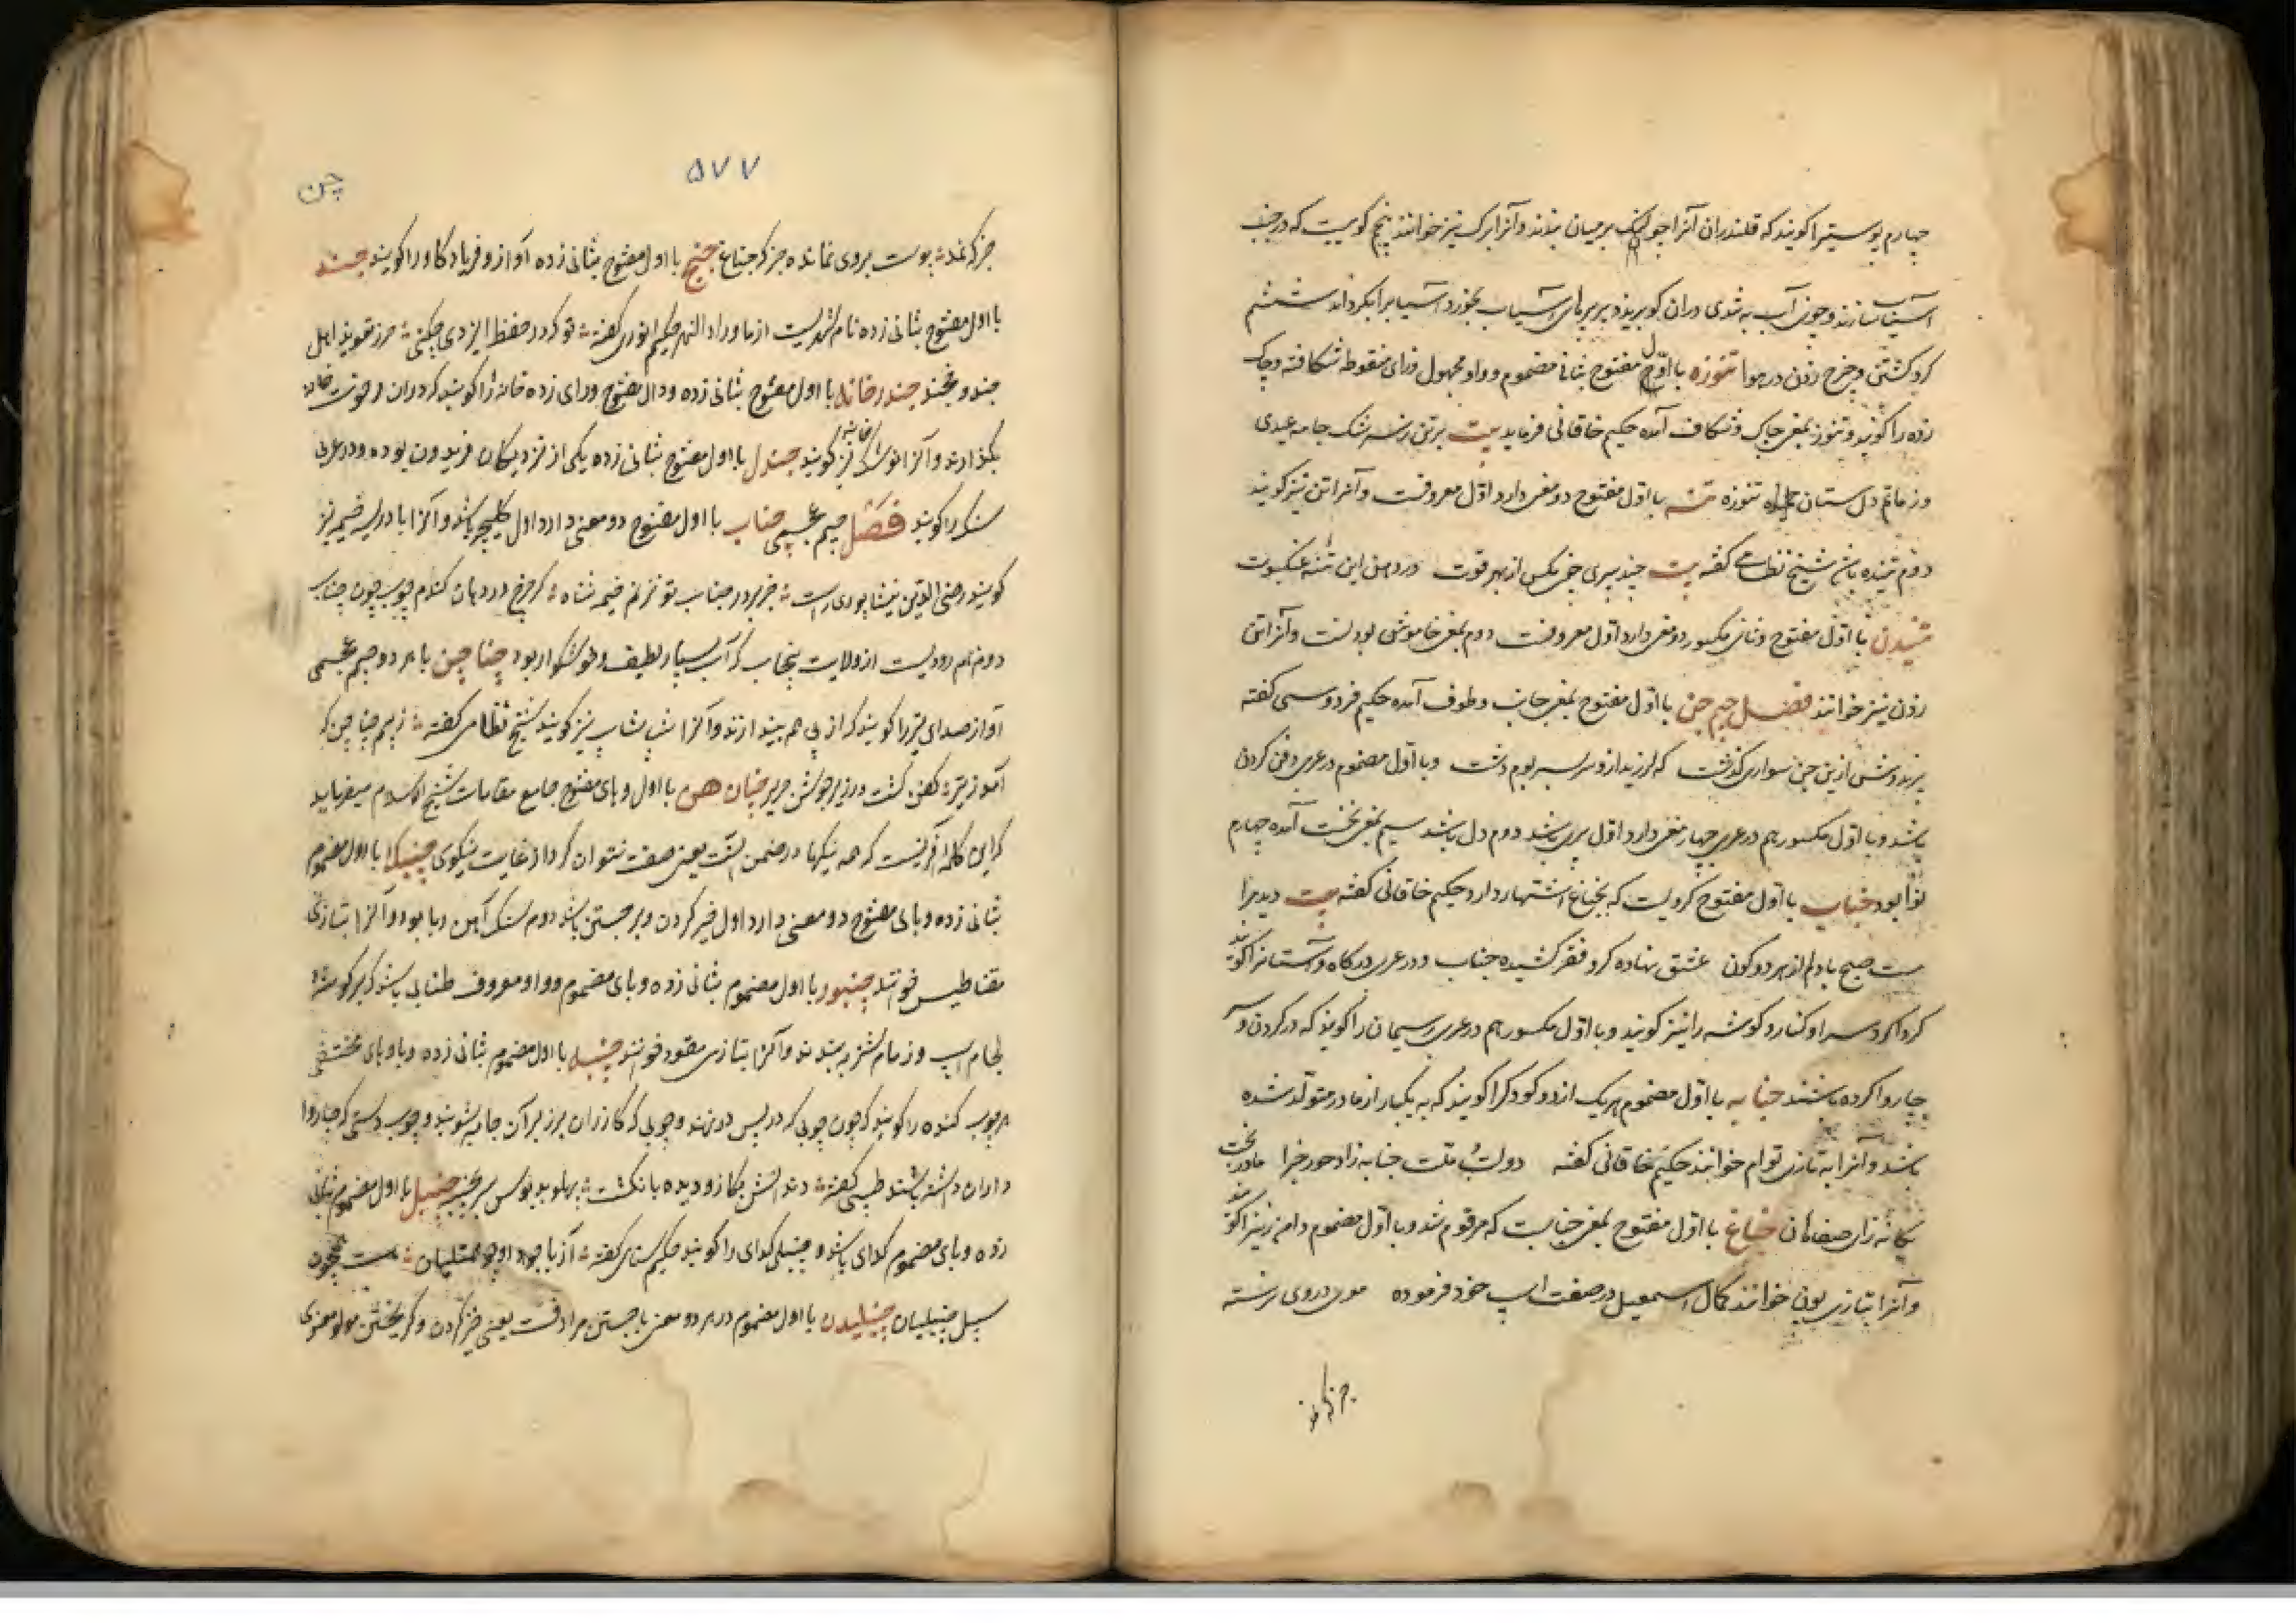 چهارم پوستیرا کویند که قلندران آنرا چون لنک بر میان بندند و آنرا برک نیز خوانند پنجم کویست که در جنب
آسیاب سازند و چون آب به تندی دران کو بریزد بر پرهای آسیاب بخورد آسیا برا بکرداند ششم
کرد کشتن و چرخ زدن در هوا تنوزه با اول مفتوح بثانی مضموم و واو مجهول و زای منقوطه شکافته و چاک
زده را کویند و تنوز بمعنی چاک و شکاف آمده حکیم خاقانی فرماید بیت بر تن ز سرشک جامه عیدی
وز ماتم دل ستان تنوزه تنه با اول مفتوح دو معنی دارد اول معروفست و آنرا تن نیز کویند
دوم تننده باشد شیخ نظامی کفته بیت چند پری چون مکس از بهر قوت در دهن این تنه عنکبوت
تنیدن با اول مفتوح و ثانی مکسور دو معنی دارد اول معروفست دوم بمعنی خاموشی بودنست و آنرا تن
زدن نیز خوانند فصل جیم جن با اول مفتوح بمعنی جانب و طرف آمده حکیم فردوسی کفته
پژوهش ازین جن سواری کذشت که لرزید ازو سربسر بوم دشت و با اول مضموم در عربی دفن کردن
باشد و با اول مکسور هم در عربی چهار معنی دارد اول پری باشد دوم دل باشد سیم بمعنی نخست آمده چهارم
نوا بود جناب با اول مفتوح کرویست که بجناغ اشتهار دارد حکیم خاقانی کفته بیت دیدم
ست صبح با دلم از هر دو کون عشق نهاده کرو فقر کشیده جناب و در عربی درکاه و آستانرا کویند
کرداکرد سرا و کنار و کوشه را نیز کویند و با اول مکسور هم در عربی ریسمان را کویند که در کردن
چاروا کرده باشند جنابه با اول مضموم هر یک از دو کودک را کویند که به یکبار از مادر متولد شده
باشد و آنرا به تازی توام خوانند حکیم خاقانی کفته دولت و ملت جنابه زاد چو جوزا مادر بخت
یکانه زای صفاهان جناغ با اول مفتوح بمعنی جنابست که مرقوم شد و با اول مضموم دامن زین را کویند
و آنرا بتازی یون خوانند کمال اسمعیل در صفت اسپ خود فرموده موی در وی رسته
جز که نمد
۵۷۷
چن
جز که نمد پوست بروی نمانده جز که جناغ جنج با اول مفتوح بثانی زده آواز و فریاد کاو را کویند جند
با اول مفتوح بثانی زده نام شهریست از ماوراء النهر حکیم انوری کفته تو کرد حفظ ایزدی چکنی حرز تعویذ اهل
جند و خجند جندر خانه با اول مفتوح بثانی زده و دال مفتوح و رای زده خانه را کویند که دران رخوت خانه
بکذارند و آنرا توشک خانه نیز کویند جندل با اول مفتوح بثانی زده یکی از نزدیکان فریدون بوده و در عربی
سنک را کویند فصل جیم عجمی چناب با اول مفتوح دو معنی دارد اول کلیچه باشد و آنرا بادریسه خیمه نیز
کویند رضی الدین نیشابوری راست خز بر در جناب تو نزنم خیمه ثناه کر چرخ در دهان کندم چوب چون چناب
دوم نام رودیست از ولایت پنجاب که آب بسیار لطیف و خوشکوار بود چناچن با هر دو جیم عجمی
آواز صدای تیر را کویند که از پی هم بیندازند و آنرا شپ شاپ نیز کویند شیخ نظامی کفته ز بیم چناچن که
آمد ز تیر کفن کشت در زیر جوشن حریر چنان هن با اول و های مفتوح جامع مقامات شیخ الاسلام میفرماید
که این کلمه آفرینست که همه نیکیها در ضمن انست یعنی صفت نتوان کرد از غایت نیکوی چنبک با اول مضموم
بثانی زده و بای مفتوح دو معنی دارد اول خیز کردن و برجستن باشد دوم سنک آهن ربا بود و آنرا بتازی
مقناطیس خوانند چنبور با اول مضموم بثانی زده و بای مضموم و واو معروف طنابی باشد که بر کوشه
لجام اسپ و زمام شتر به بندند و آنرا بتازی مقود خوانند چنبه با اول مضموم بثانی زده و با و های مختفی
هر چوب کنده را کویند که چون چوبی که در پس در نهند و چوبی که کازران بر زبر آن جامه شویند و چوب دستی که چاروا
داران داشته باشند طیبی کفته دندانش بکاز و دیده بانکشت پهلو بدبوس سر بچنبه چنبل با اول مضموم بثانی
زده و بای مضموم کدای باشد و چنبلی کدای را کویند حکیم سنای کفته آز با جود او چو ممتلیان هست همچون
سبل چنبلیان چنبلیدن با اول مضموم در هر دو معنی با جستن مرادفست یعنی خیز کردن و کریختن مولوی معنوی